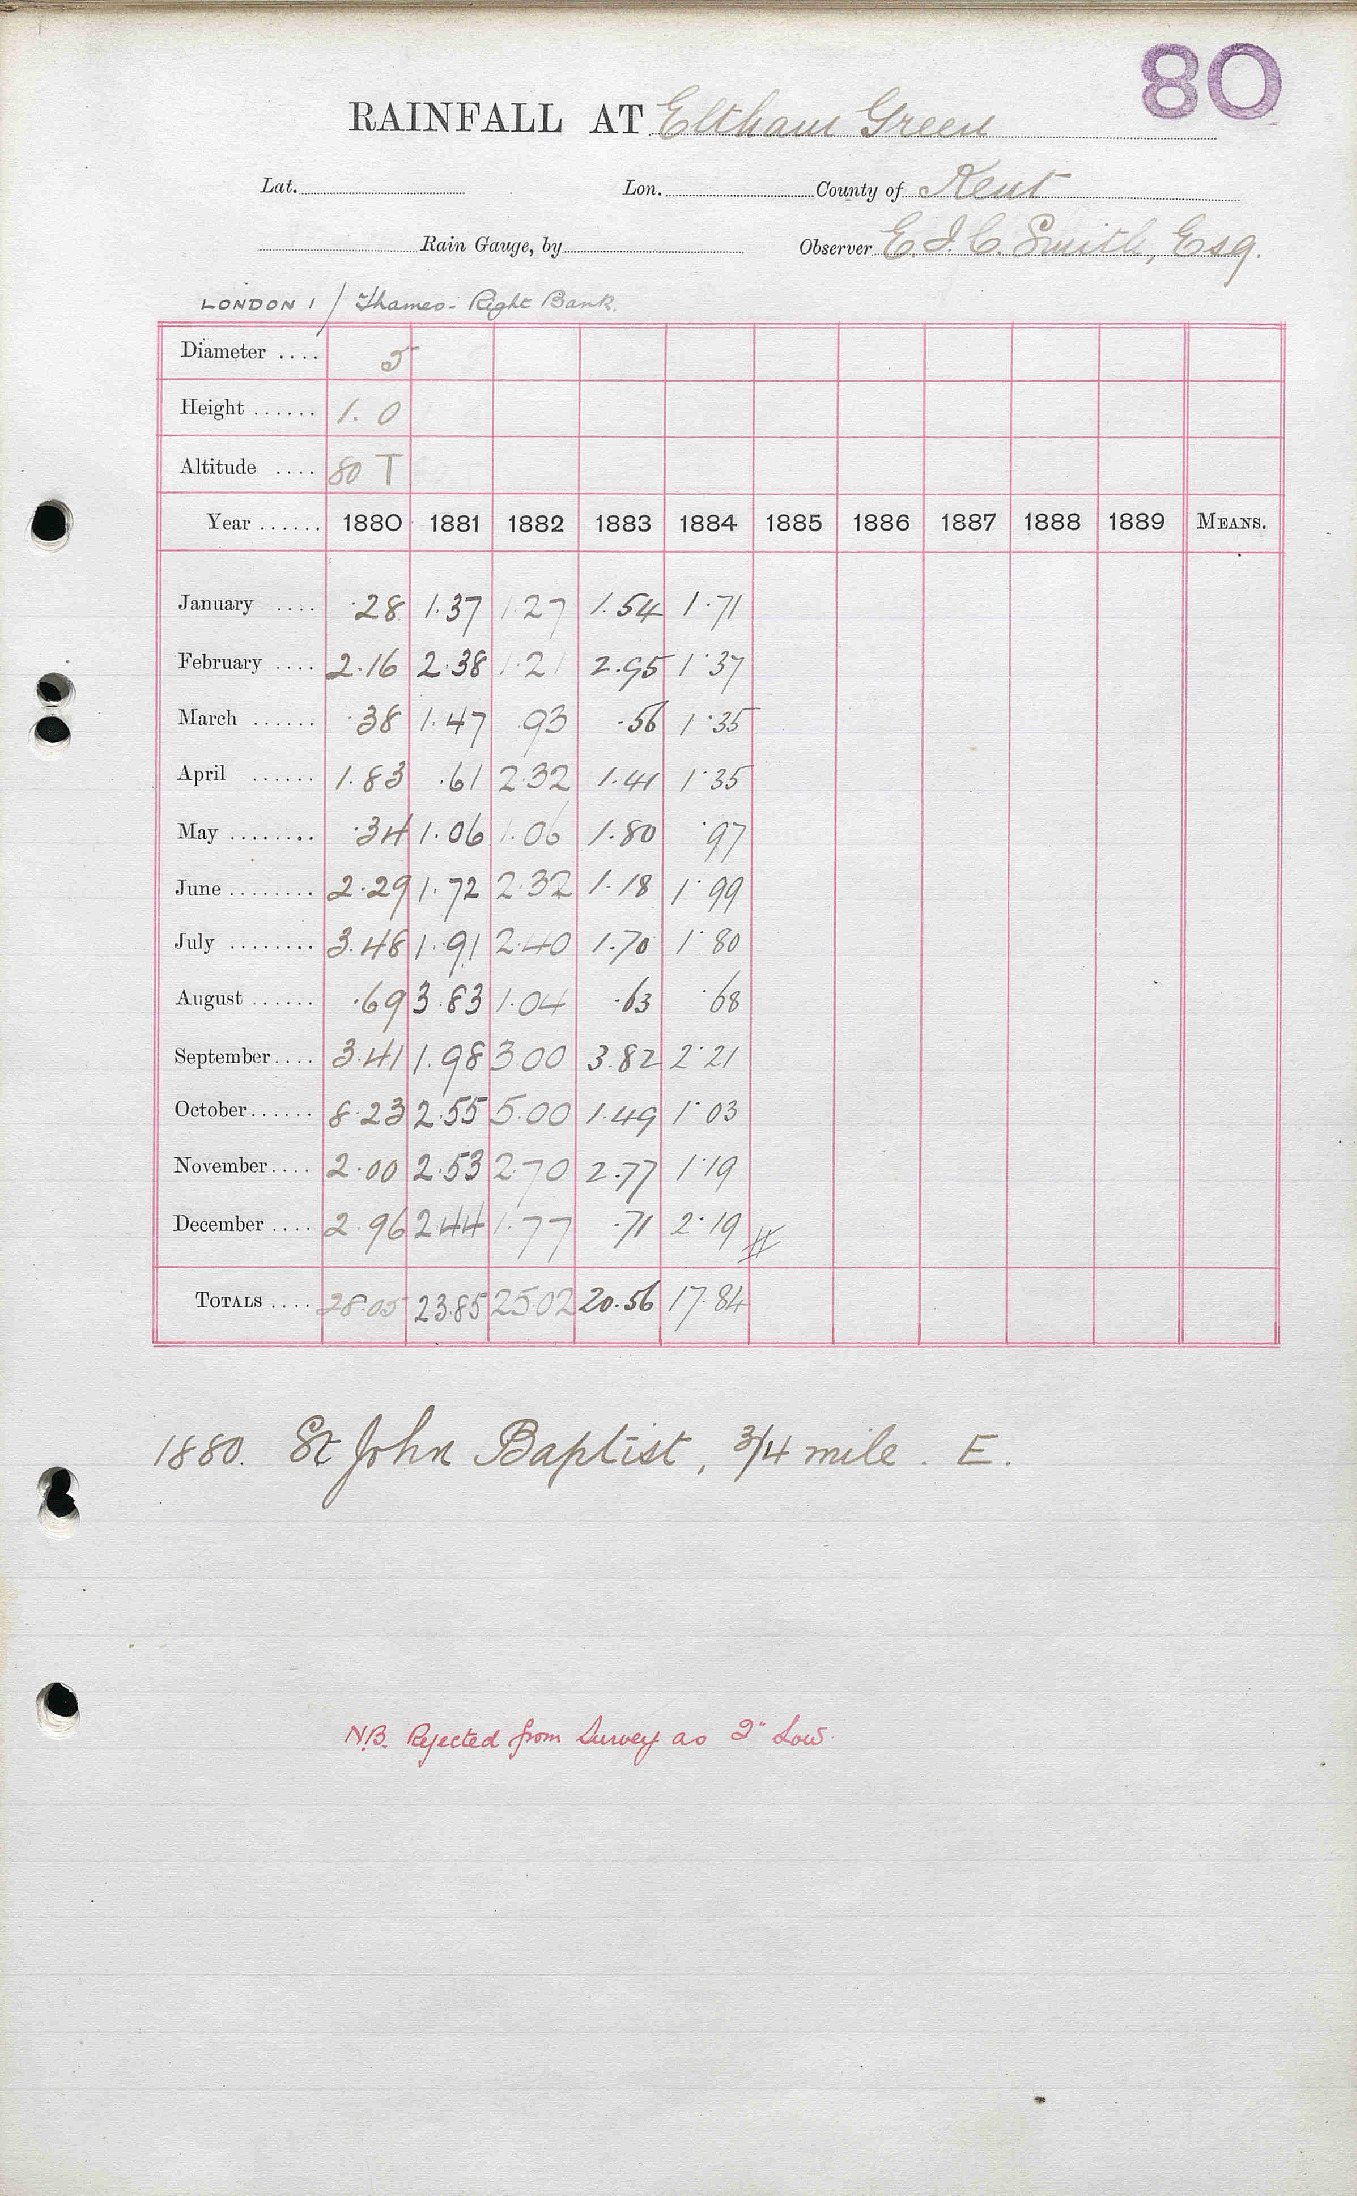 80
RAINFALL AT Eltham Green
Lat. Lon. County of Kent
Rain Gauge, by Observer E. J. C. Smith, Esq.
LONDON 1 / Thames - Right Bank.
Diameter .... 5
Height ...... 1. 0
Altitude .... 80 T
Year ...... 1880 1881 1882 1883 1884 1885 1886 1887 1888 1889 MEANS.
January .... .28 1.37 1.27 1.54 1.71
February .... 2.16 2.38 1.21 2.95 1.37
March ...... .38 1.47 .93 .56 1.35
April ...... 1.83 .61 2.32 1.41 1.35
May ........ .34 1.06 1.06 1.80 .97
June ........ 2.29 1.72 2.32 1.18 1.99
July ........ 3.48 1.91 2.40 1.70 1.80
August ...... .69 3.83 1.04 .63 .68
September .... 3.41 1.98 3.00 3.82 2.21
October ...... 8.23 2.55 5.00 1.49 1.03
November .... 2.00 2.53 2.70 2.77 1.19
December .... 2.96 2.44 1.77 .71 2.19
TOTALS .... 28.05 23.85 25.02 20.56 17.84
1880. St John Baptist, 3/4 mile. E.
N.B. Rejected from Survey as 2" Low.